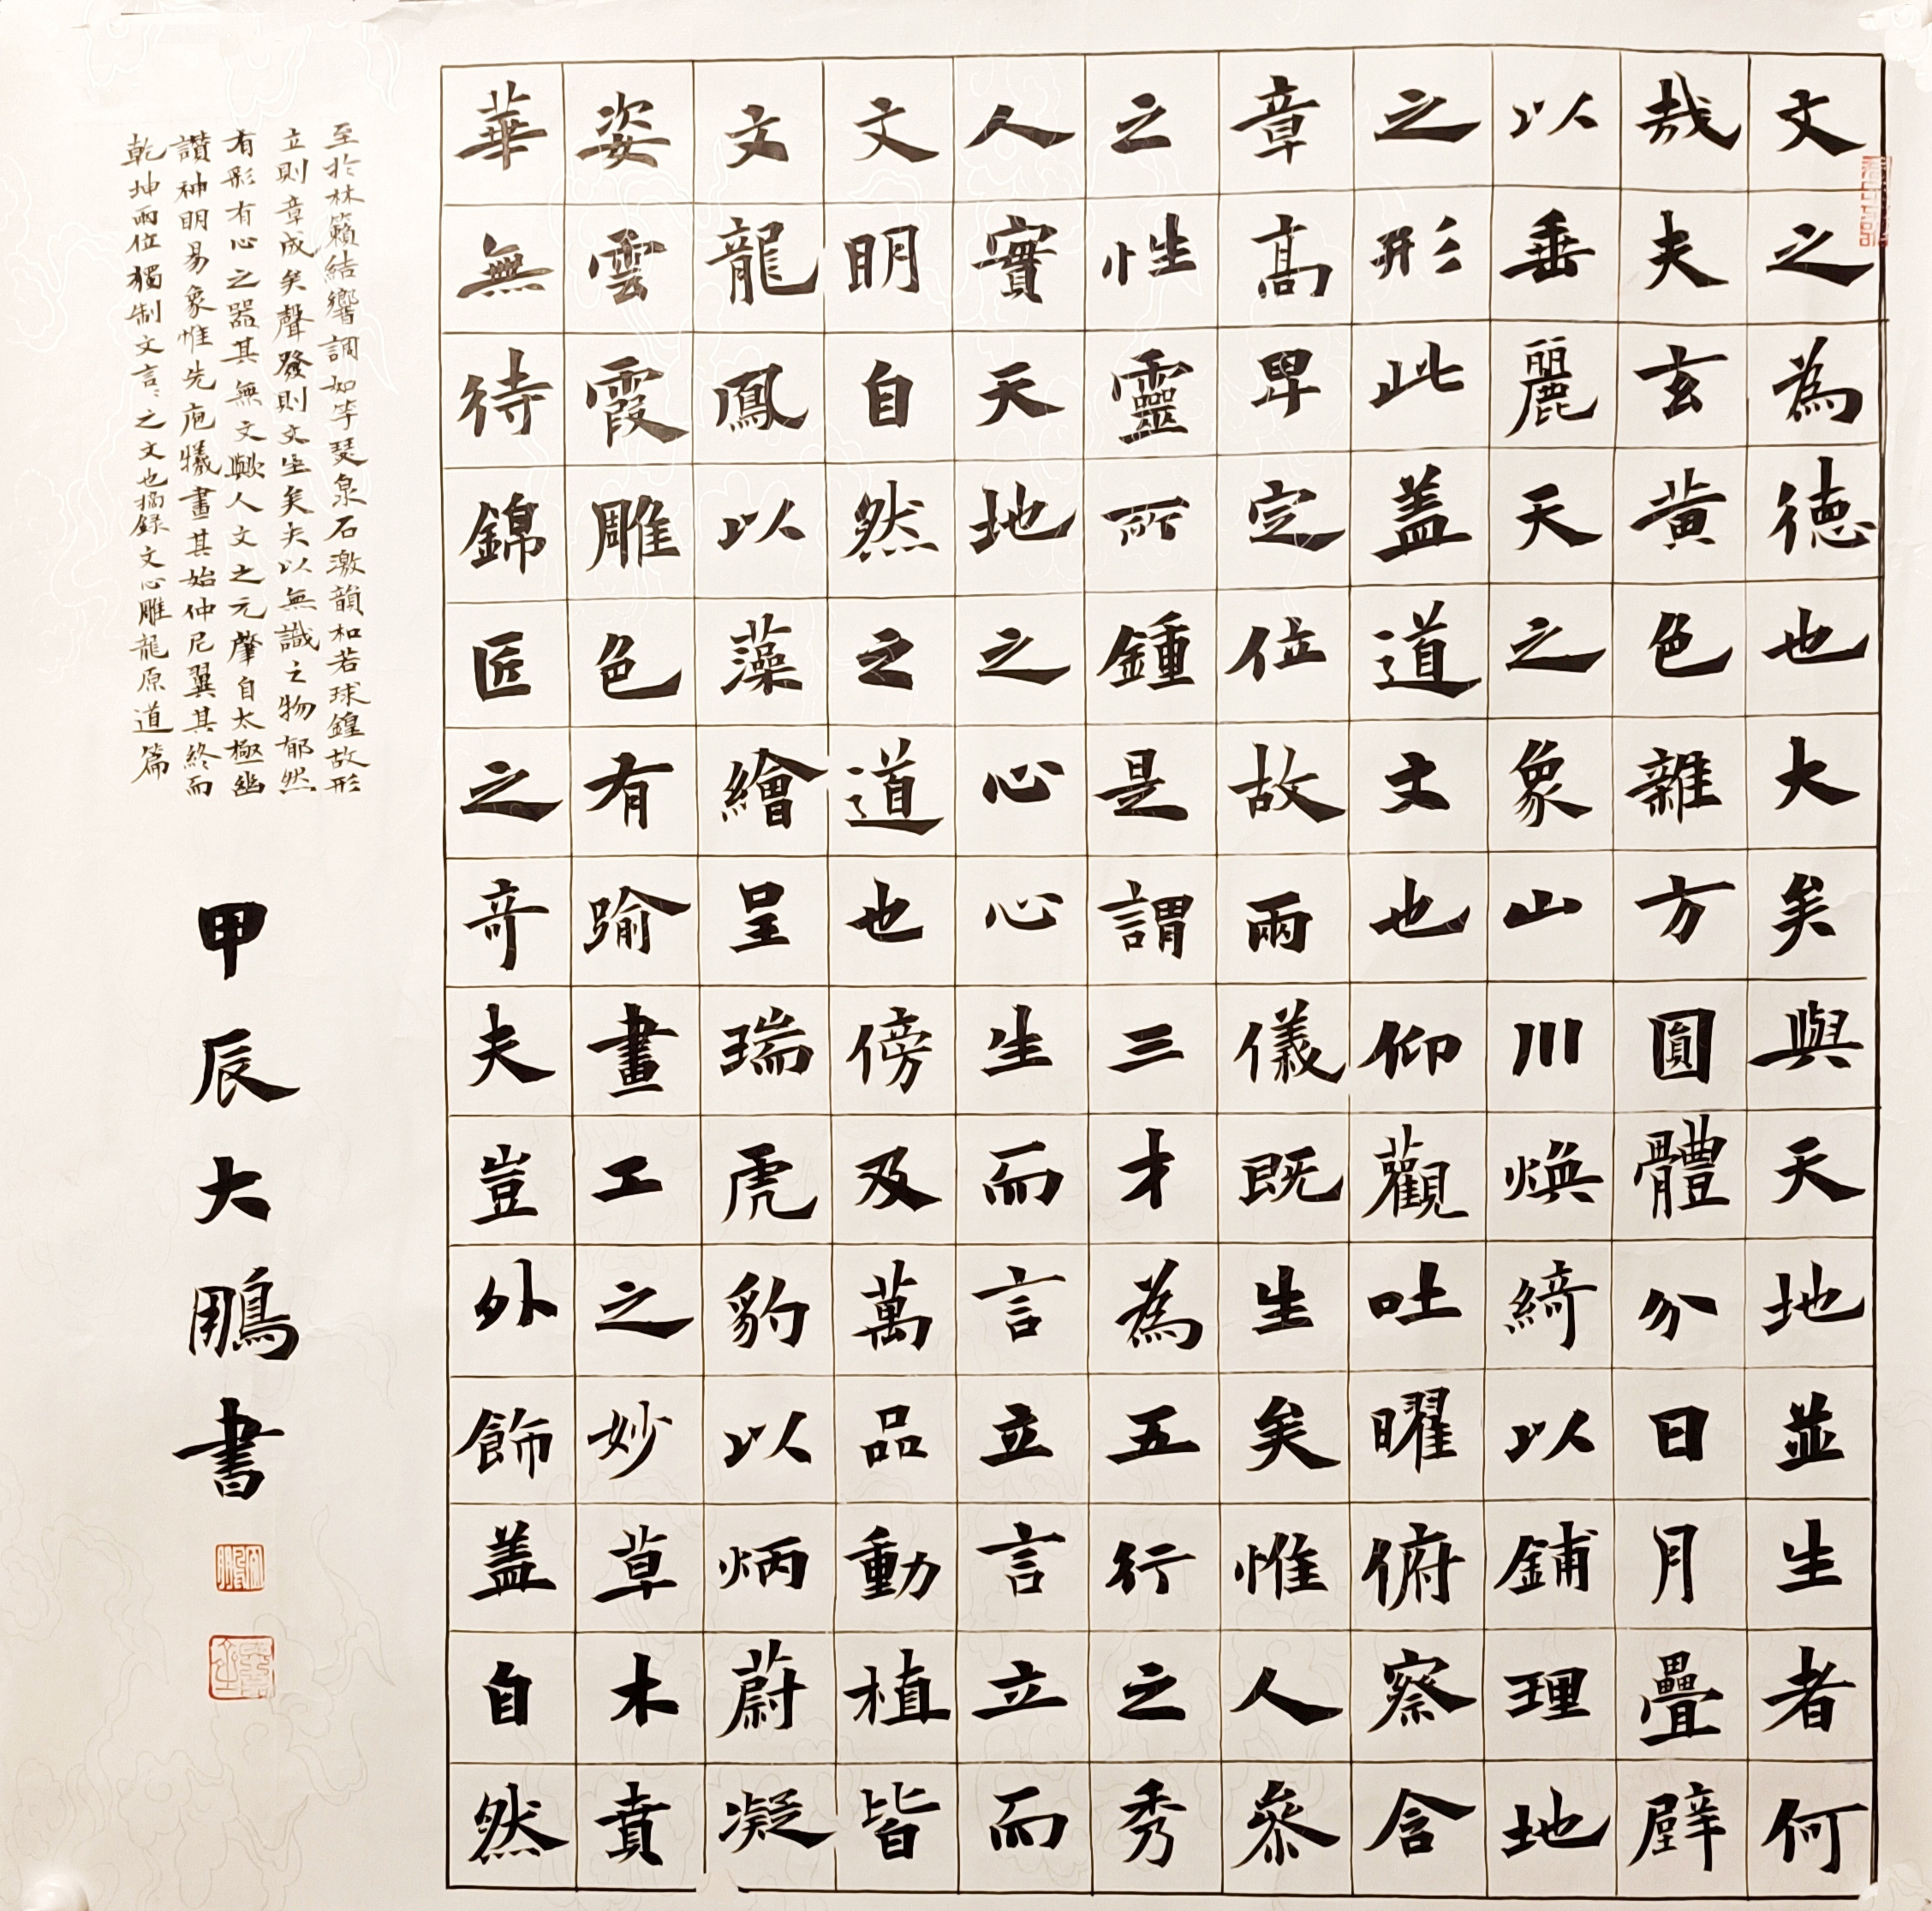 文之為德也大矣與天地並生者何
哉夫玄黄色雜方圓體分日月疊璧
以垂麗天之象山川煥綺以鋪理地
之形此盖道文也仰觀吐曜俯察含
章高卑定位故兩儀既生矣惟人參
之性靈所鍾是謂三才為五行之秀
人實天地之心心生而言立言立而
文明自然之道也傍及萬品動植皆
文龍鳳以藻繪呈瑞虎豹以炳蔚凝
姿雲霞雕色有踰畫工之妙草木賁
華無待錦匠之奇夫豈外飾盖自然
至於林籟結響調如竽瑟泉石激韻和若球鍠故形
立則章成矣聲發則文生矣夫以無識之物郁然
有彩有心之器其無文歟人文之元肇自太極幽
讚神明易象惟先庖犧畫其始仲尼翼其終而
乾坤兩位獨制文言〻之文也摘録文心雕龍原道篇
甲辰大鵬書